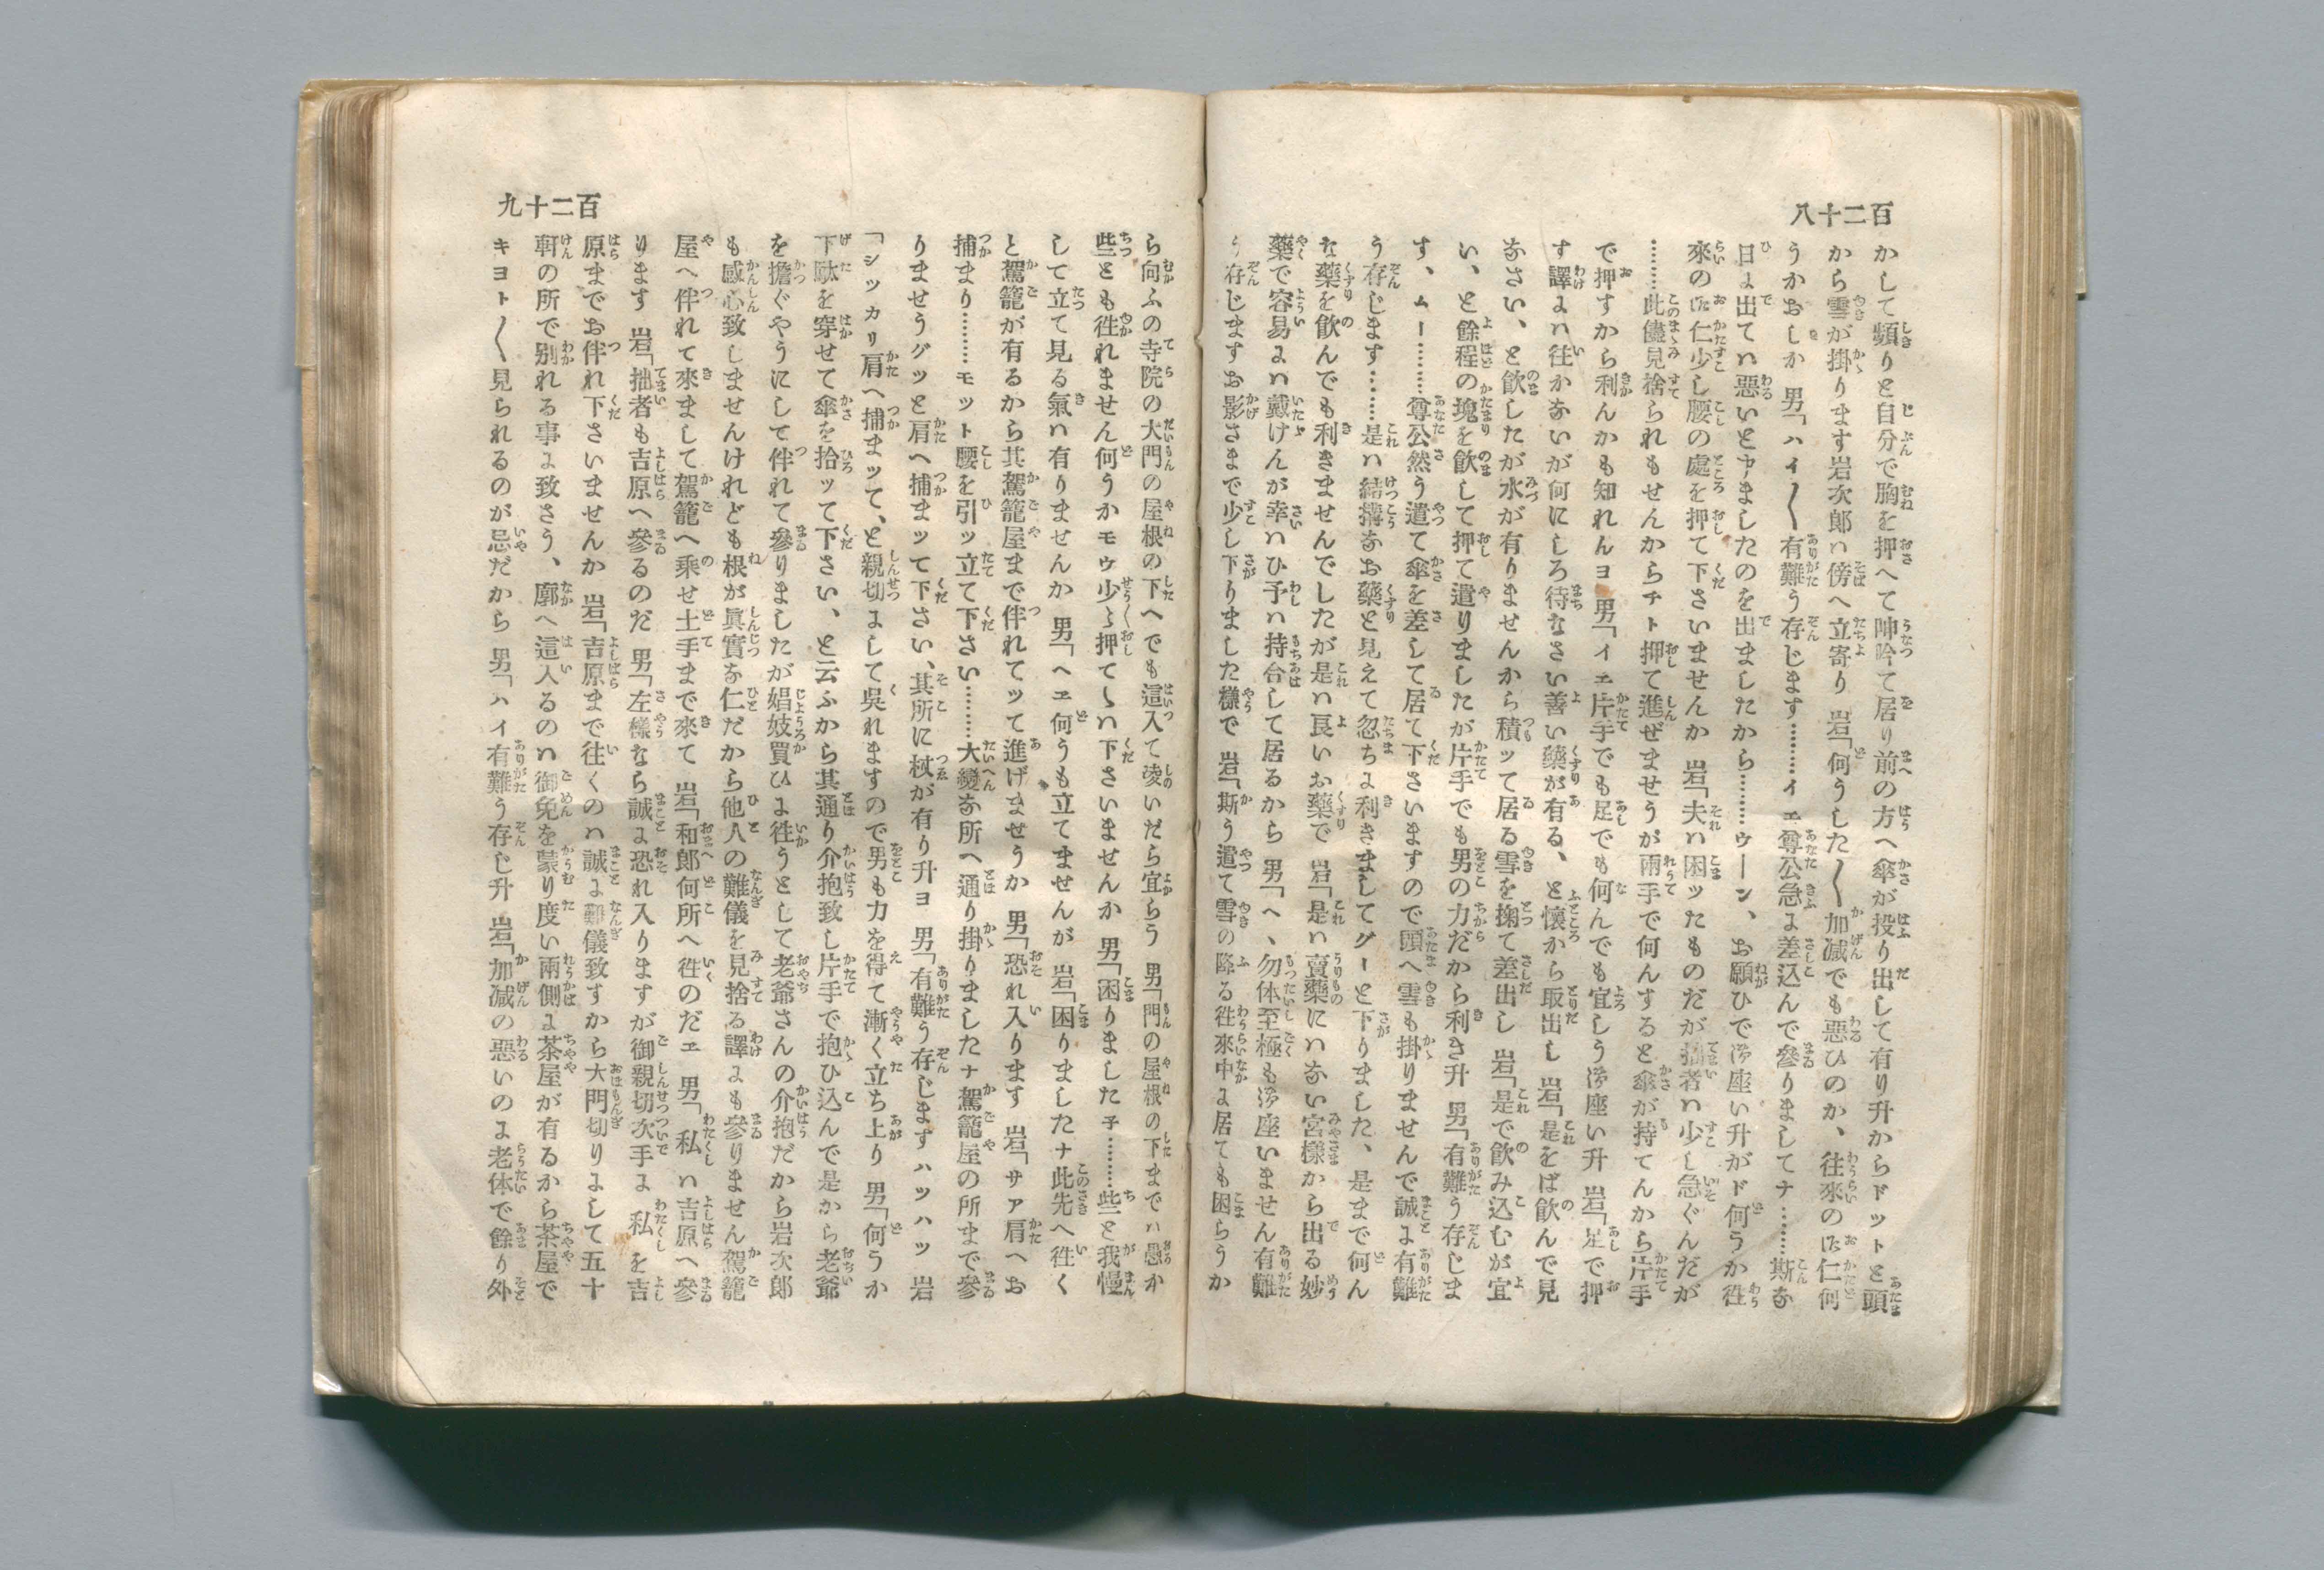 百二十八
かして頻りと自分で胸を押へて呻吟て居り前の方へ傘が投り出して有り升からドットと頭
から雪が掛ります岩次郎ハ傍へ立寄り 岩「何うした〳〵加减でも惡ひのか、往來のお仁何
うかおしか 男「ハイ〳〵有難う存じます………イエ尊公急に差込んで參りましてナ……斯な
日に出てハ惡いとヤましたのを出ましたから………ウーン、お願ひで御座い升がド何うか徃
來のお仁少し腰の處を押て下さいませんか 岩「夫ハ困ッたものだが拙者ハ少し急ぐんだが
………此儘見捨られもせんからチト押て進ぜませうが兩手で何んすると傘が持てんから片手
で押すから利んかも知れんヨ 男「イエ片手でも足でも何んでも宜しう御座い升 岩「足で押
す譯にハ往かないが何にしろ待なさい善い藥が有る、と懷から取出し 岩「是をば飮んで見
なさい、と飮したが水が有りませんから積ッて居る雪を掬て差出し 岩「是で飮み込むが宜
い、と餘程の塊を飮して押て遣りましたが片手でも男の力だから利き升 男「有難う存じま
す、ムー………尊公然う遣て傘を差して居て下さいますので頭へ雪も掛りませんで誠に有難
う存じます………是ハ結搆なお藥と見えて忽ちに利きましてグーと下りました、是まで何ん
な藥を飮んでも利きませんでしたが是ハ良いお藥で 岩「是ハ賣藥にハない宮樣から出る妙
藥で容易にハ戴けんが幸ハひ予ハ持合して居るから 男「ヘ、勿体至極も御座いません有難
う存じますお影さまで少し下りました樣で 岩「斯う遣て雪の降る徃來中に居ても困らうか
百二十九
ら向ふの寺院の大門の屋根の下へでも這入て凌いだら宜らう 男「門の屋根の下までハ愚か
些とも徃れません何うかモウ少々押て〻ハ下さいませんか 男「困りました子………些と我慢
して立て見る氣ハ有りませんか 男「ヘエ何うも立てませんが 岩「困りましたナ此先へ徃く
と駕籠が有るから其駕籠屋まで伴れてッて進げませうか 男「恐れ入ります 岩「サア肩へお
捕まり………モット腰を引ッ立て下さい………大變な所へ通り掛りましたナ駕籠屋の所まで參
りませうグッと肩へ捕まッて下さい、其所に杖が有り升ヨ 男「有難う存じますハッハッ 岩
「シッカリ肩へ捕まッて、と親切にして呉れますので男も力を得て漸く立ち上り 男「何うか
下駄を穿せて傘を拾ッて下さい、と云ふから其通り介抱致し片手で抱ひ込んで是から老爺
を擔ぐやうにして伴れて參りましたが娼妓買ひに徃うとして老爺さんの介抱だから岩次郎
も感心致しませんけれども根が眞實な仁だから他人の難儀を見捨る譯にも參りません駕籠
屋へ伴れて來まして駕籠へ乘せ土手まで來て 岩「和郎何所へ徃のだエ 男「私ハ吉原へ參
ります 岩「拙者も吉原へ參るのだ 男「左樣なら誠に恐れ入りますが御親切次手に私を吉
原までお伴れ下さいませんか 岩「吉原まで往くのハ誠に難儀致すから大門切りにして五十
軒の所で別れる事に致さう、廓へ這入るのハ御免を蒙り度い兩側に茶屋が有るから茶屋で
キヨト〳〵見られるのが忌だから 男「ハイ有難う存じ升 岩「加减の惡いのに老体で餘り外